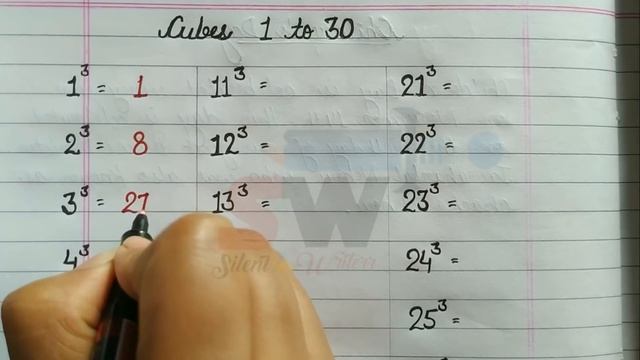 Cubes 1 to 30
1³ = 1 11³ = 21³ =
2³ = 8 12³ = 22³ =
3³ = 27 13³ = 23³ =
4³ 24³ =
25³ =
SW
Silent Writer